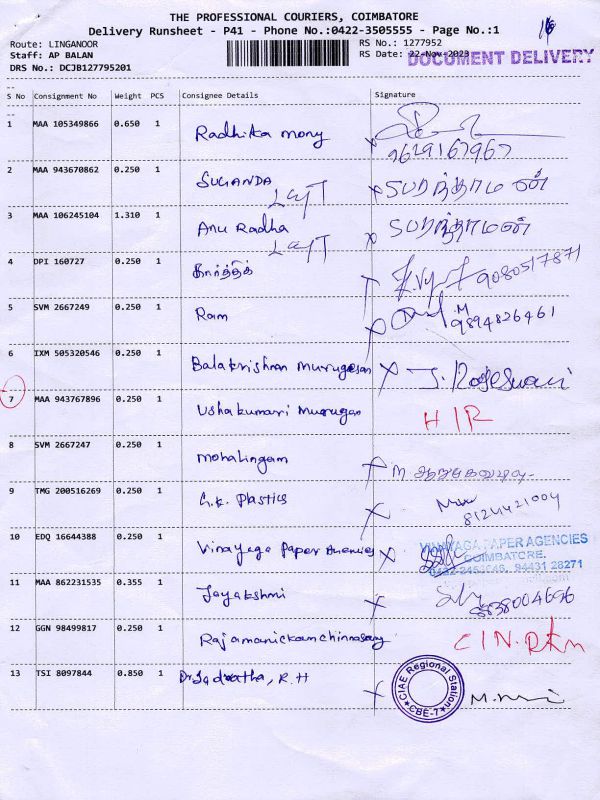 THE PROFESSIONAL COURIERS, COIMBATORE
Delivery Runsheet - P41 - Phone No.:0422-3505555 - Page No.:1
Route: LINGANOOR
RS No.: 1277952
Staff: AP BALAN
RS Date: 22-Nov-2023
DOCUMENT DELIVERY
DRS No.: DCJB127795201
S No Consignment No Weight PCS Consignee Details Signature
1 MAA 105349866 0.650 1 Radhika mony
9629167967
2 MAA 943670862 0.250 1 SUGANDA
3 MAA 106245104 1.310 1 Anu Radha
4 DPI 160727 0.250 1 கார்த்திக் 9080517871
5 SVM 2667249 0.250 1 Ram
9894826461
6 IXM 505320546 0.250 1 Balakrishnan Murugesan
7 MAA 943767896 0.250 1 Ushakumari Murugan
8 SVM 2667247 0.250 1 Mohalingam
9 TMG 200516269 0.250 1 G.K. Plastics
8124421004
10 EDQ 16644388 0.250 1 Vinayaga Paper Agencies VINAYAGA PAPER AGENCIES
COIMBATORE.
94431 28271
11 MAA 862231535 0.355 1 Jayakshmi
12 GGN 98499817 0.250 1 Rajamanickam chinnasamy
13 TSI 8097844 0.850 1 R.H
CIAE Regional Station
CBE-7